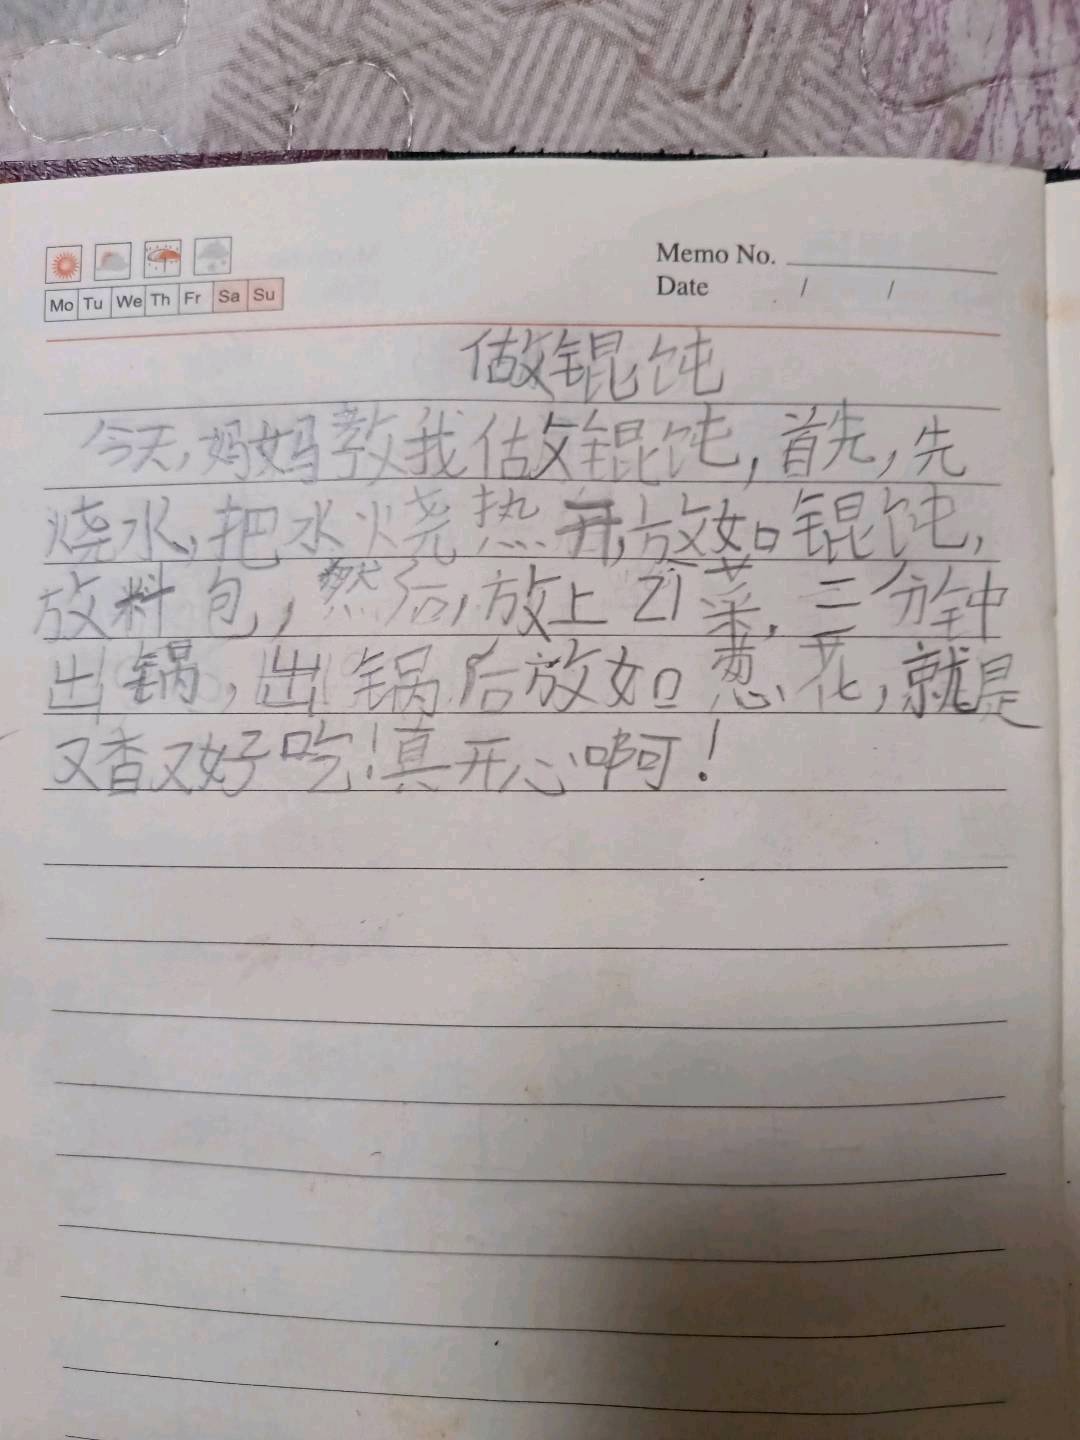 Memo No.
Date / /
Mo Tu We Th Fr Sa Su
做锟饨
今天,妈妈教我做锟饨,首先,先
烧水,把水烧热开,放如锟饨,
放料包,然后,放上菜,三分钟
出锅,出锅后放如葱花,就是
又香又好吃!真开心啊!